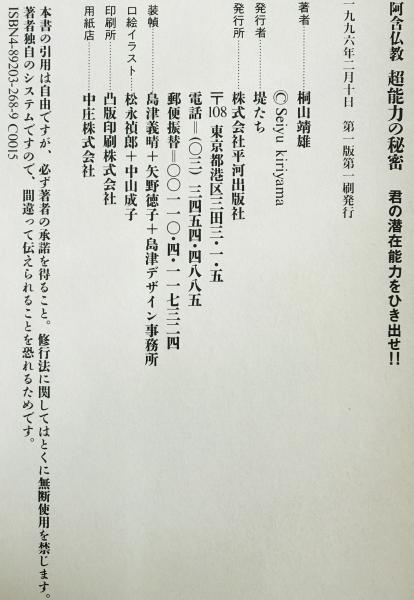 阿含仏教 超能力の秘密 君の潜在能力をひき出せ!!
一九九六年二月十日 第一版第一刷発行
著者………桐山靖雄
©Seiyu kiriyama
発行者………堤たち
発行所………株式会社平河出版社
〒108 東京都港区三田三・一・五
電話＝〇三）三四五四・四八八五
郵便振替＝〇〇一一〇・四・一一七三二四
装幀………島津義晴＋矢野徳子＋島津デザイン事務所
口絵イラスト………松永禎郎＋中山成子
印刷所………凸版印刷株式会社
用紙店………中庄株式会社
本書の引用は自由ですが、必ず著者の承諾を得ること。修行法に関してはとくに無断使用を禁じます。
著者独自のシステムですので、間違って伝えられることを恐れるためです。
ISBN4-89203-268-9 C0015